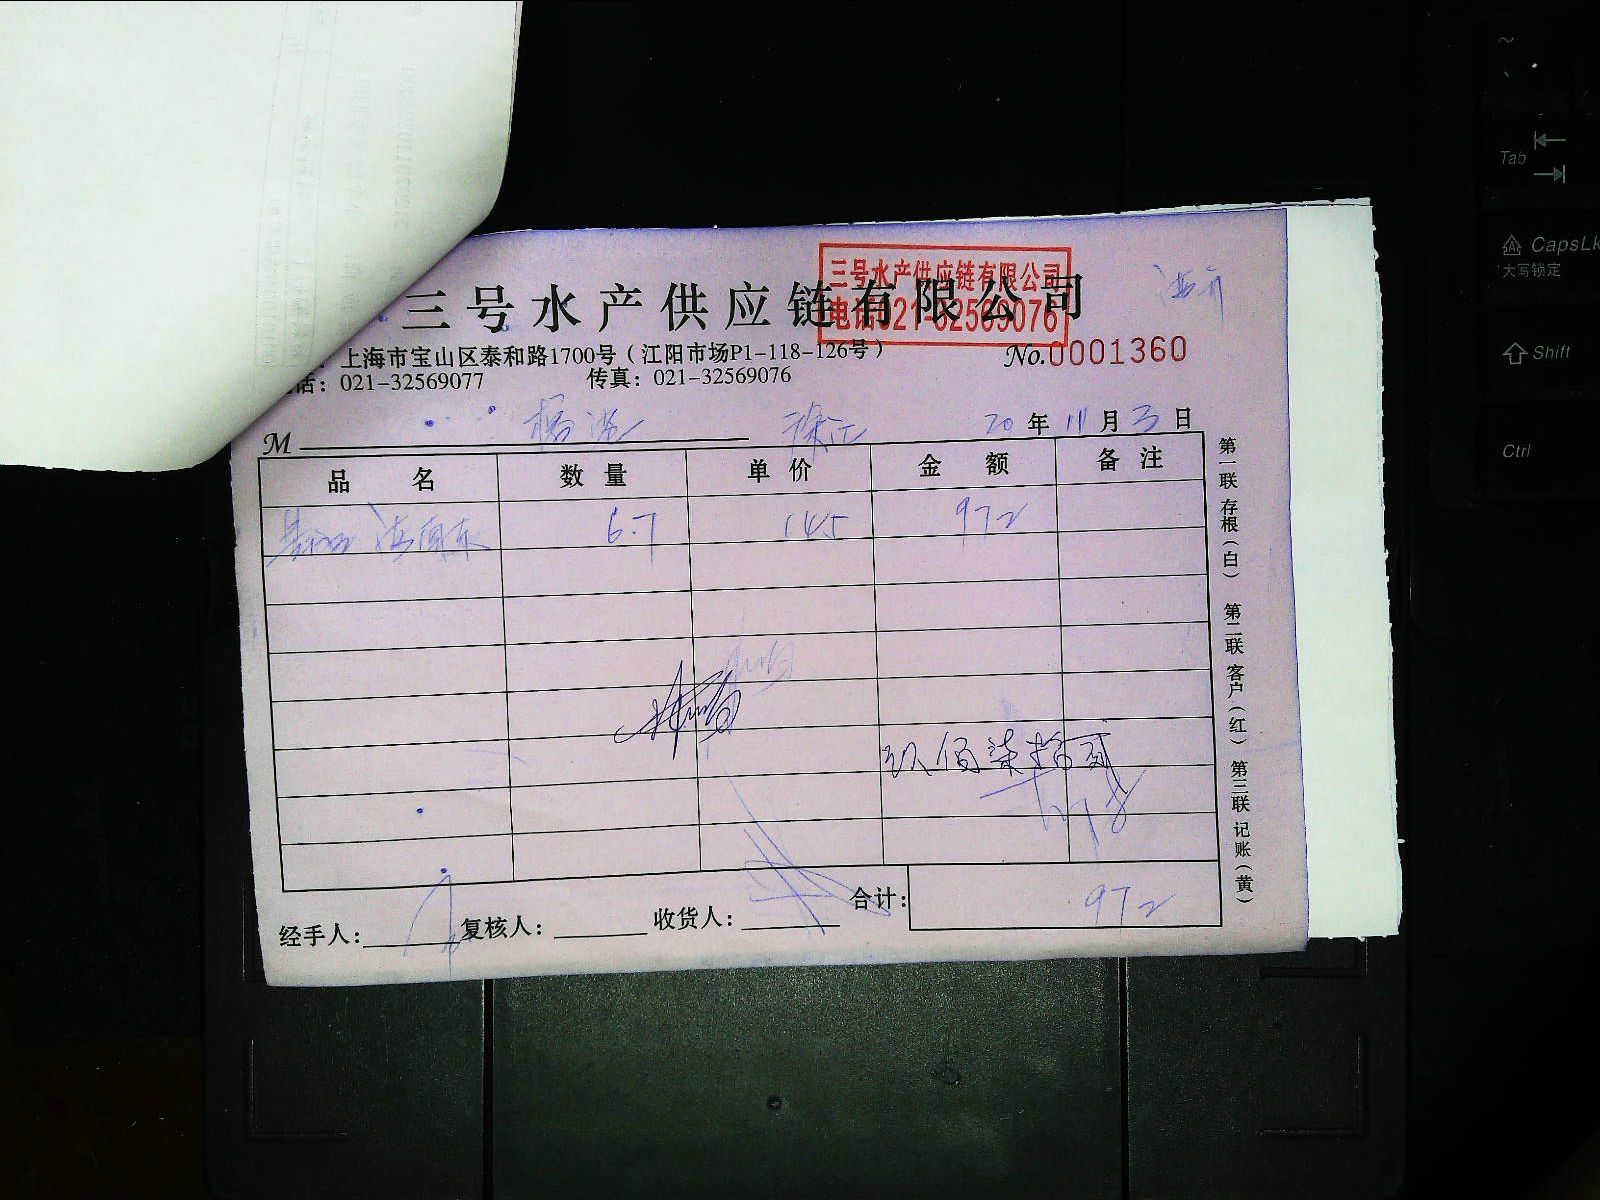 三号水产供应链有限公司
三号水产供应链有限公司
电话021-32569076
上海市宝山区泰和路1700号（江阳市场P1-118-126号）
No.0001360
话：021-32569077 传真：021-32569076
M 20年11月3日
品名 数量 单价 金额 备注
6.7 145 972
玖佰柒拾贰
合计：972
经手人： 复核人： 收货人：
第一联 存根（白） 第二联 客户（红） 第三联 记账（黄）
~
Tab
CapsLk
大写锁定
Shift
Ctrl